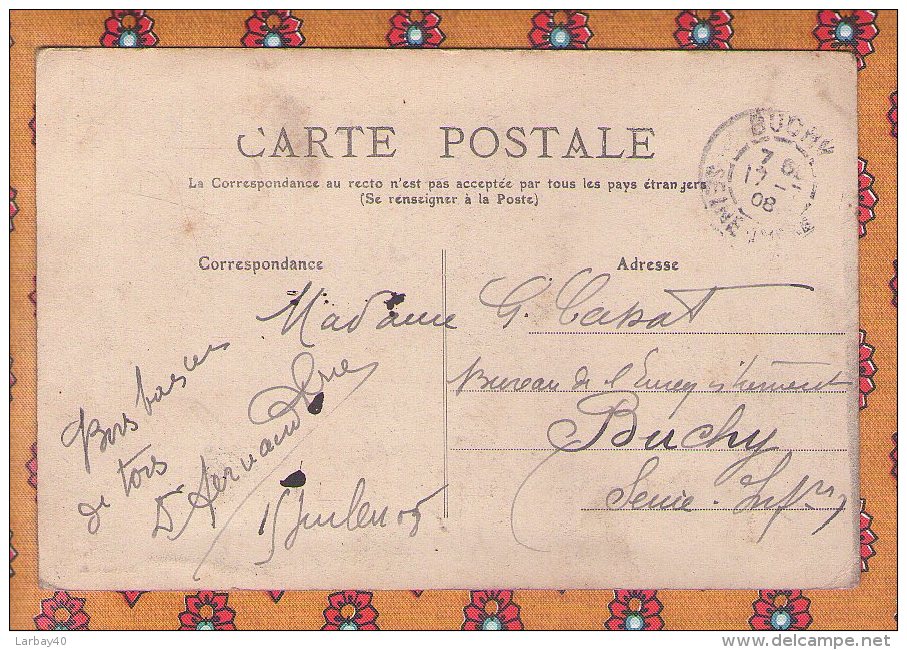 CARTE POSTALE
La Correspondance au recto n'est pas acceptée par tous les pays étrangers
(Se renseigner à la Poste)
BUCHY
SEINE
7
17
08
Correspondance
Adresse
Madame G.
Bureau de l'Enregistrement
Buchy
Seine-Infre
Bons baisers
de tous
Larbay40
www.delcampe.net